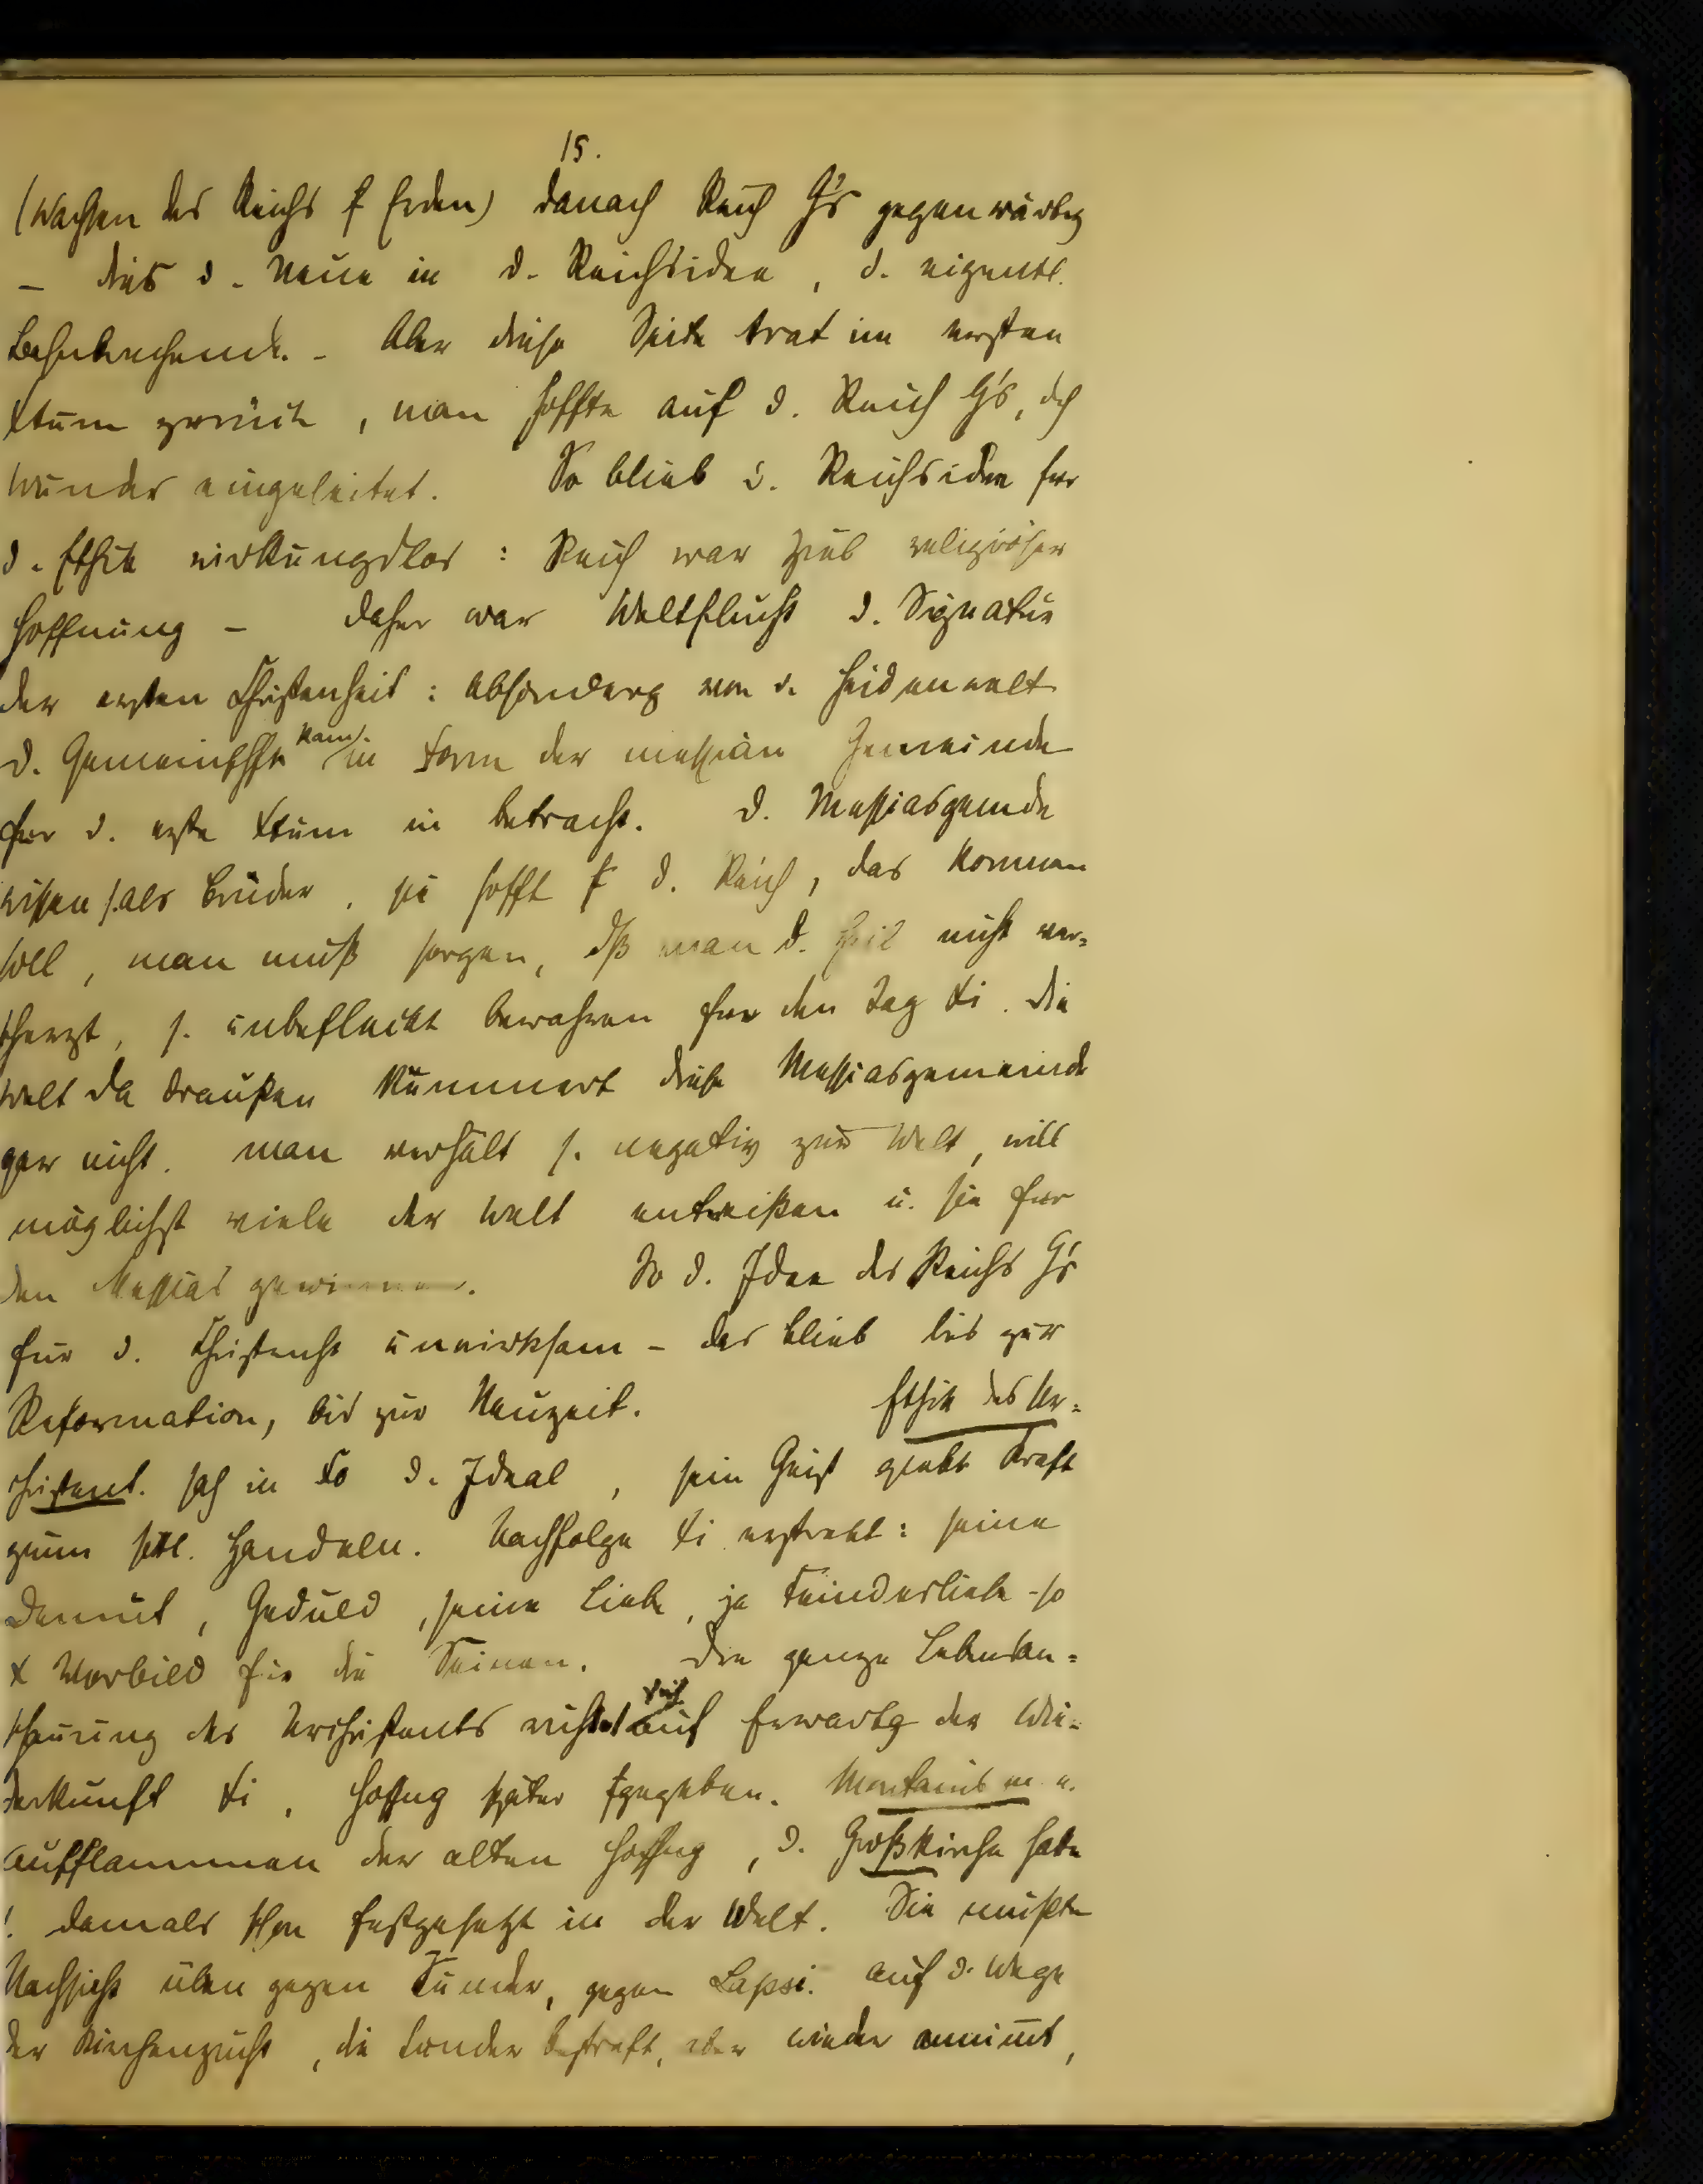 15.
(Wachsen des Reichs f Erden) danach Reich G's gegenwärtig
– dies d. Neue in d. Reichsidee, d. eigentl.
Bahnbrechende. – Aber diese Seite trat im ersten
Xtum zurück, man hoffte auf d. Reich G's, dch
Wunder eingeleitet. So blieb d. Reichsidee für
d. Ethik wirkungslos: Reich war Ziel religiöser
Hoffnung – daher war Weltflucht d. Signatur
der ersten Christenheit: Absonderg von d. Heidenwelt
d. Gemeinschft kam in Form der messian Gemeinde
für d. erste Xtum in betracht. D. Messiasgemde
wissen s. als Brüder, sie hofft f d. Reich, das kommen
soll, man muß sorgen, dß man d. Heil nicht ver=
scherzt, s. unbefleckt bewahren für den Tag Xi. Die
Welt da draußen kümmert diese Messiasgemeinde
gar nicht. man verhält s. negativ zur Welt, will
möglichst viele der Welt entreißen u. sie für
den Messias gewinnen. So d. Idee des Reichs G's
für d. Christenht unwirksam – das blieb bis zur
Reformation, bis zur Neuzeit. Ethik des Ur=
christent. sah in Xo d. Ideal, sein Geist giebt Kraft
zum sittl. Handeln. Nachfolge Xi erstrebt: seine
Demut, Geduld, seine Liebe, ja Feindesliebe – so
X Vorbild für die Seinen. Die ganze Lebensan=
schauung des Urchristents richtet sich auf Erwartg der Wie=
derkunft Xi, Hoffng später fgegeben. Montanism u.
Aufflammen der alten Hoffng, d. Großkirche hatte
s. damals schon festgesetzt in der Welt. Sie mußte
Nachsicht üben gegen Sünder, gegen Lapsi. auf d. Wege
der Kirchenzucht, die Sünder bestraft, aber wieder annimt,